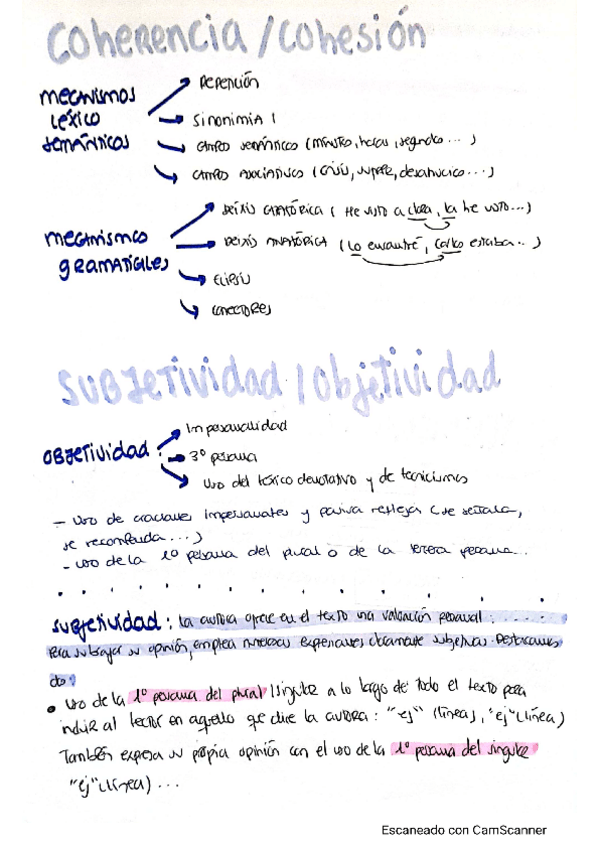 Coherencia / Cohesión
mecanismos léxico semánticos
Repetición
Sinonimia
campos semánticos (minutos, horas, segundos...)
campos asociativos (crisis, superar, desahucio...)
mecanismos gramaticales
Deixis catafórica (He visto a clara, la he visto...)
Deixis anafórica (Lo encontré, Carlos estaba...)
Elipsis
conectores
Subjetividad / Objetividad
Objetividad:
Impersonalidad
3º persona
Uso del léxico denotativo y de tecnicismos
- Uso de oraciones impersonales y pasiva refleja (se señala,
se recomienda...)
- uso de la 1º persona del plural o de la tercera persona...
Subjetividad: La autora ofrece en el texto una valoración personal.
Para subrayar su opinión, emplea numerosas expresiones claramente subjetivas. Destacamos
do:
• Uso de la 1º persona del plural /singular a lo largo de todo el texto para
incluir al lector en aquello que dice la autora: "ej" (línea), "ej" (línea)
También expresa su propia opinión con el uso de la 1º persona del singular
"ej" (línea)...
Escaneado con CamScanner